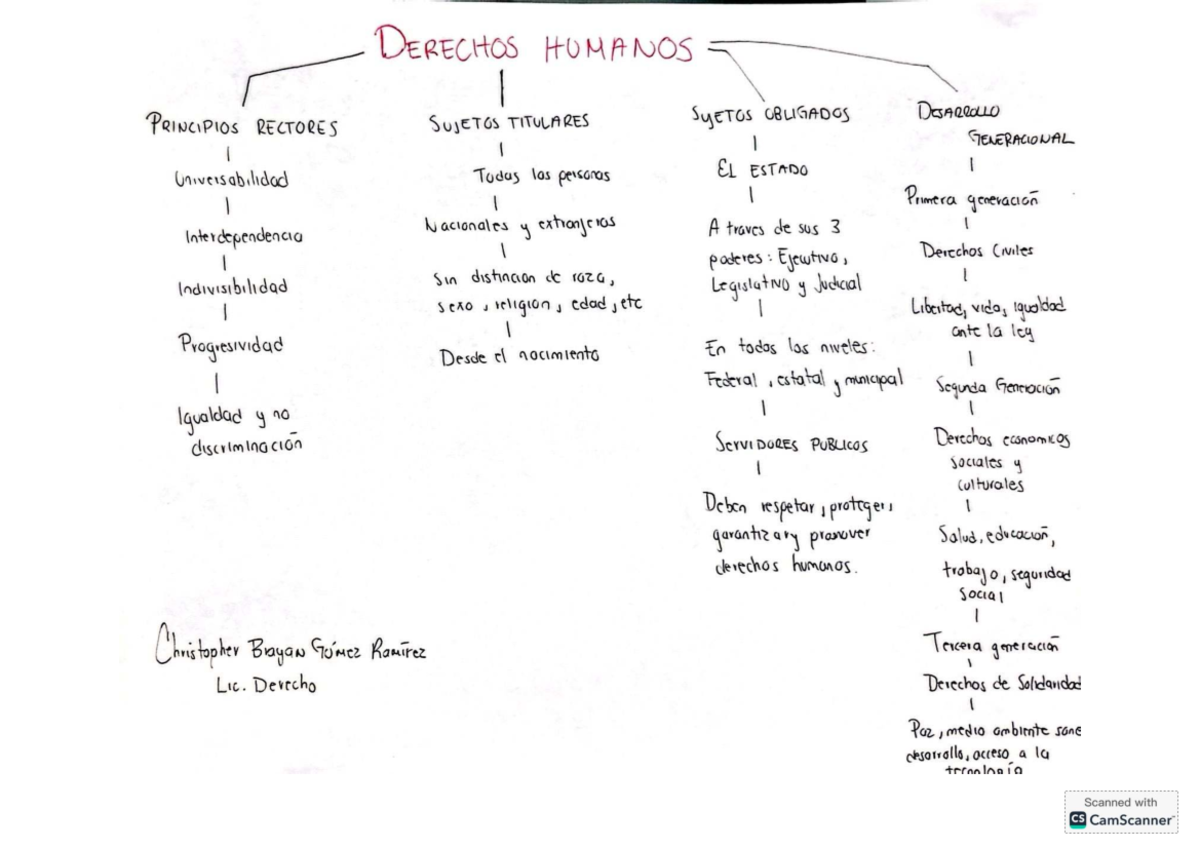 DERECHOS HUMANOS
PRINCIPIOS RECTORES
Universabilidad
Interdependencia
Indivisibilidad
Progresividad
Igualdad y no
discriminación
SUJETOS TITULARES
Todas las personas
Nacionales y extranjeras
Sin distincion de raza,
sexo, religion, edad, etc
Desde el nacimiento
SUJETOS OBLIGADOS
EL ESTADO
A traves de sus 3
poderes: Ejecutivo,
Legislativo y Judicial
En todos los niveles:
Federal, estatal y municipal
SERVIDORES PUBLICOS
Deben respetar, proteger,
garantizar y promover
derechos humanos.
DESARROLLO
GENERACIONAL
Primera generación
Derechos Civiles
Libertad, vida, igualdad
ante la ley
Segunda Generación
Derechos economicos
sociales y
culturales
Salud, educación,
trabajo, seguridad
social
Tercera generación
Derechos de Solidaridad
Paz, medio ambiente sano
desarrollo, acceso a la
tecnología
Christopher Brayan Gómez Ramírez
Lic. Derecho
Scanned with
CS CamScanner